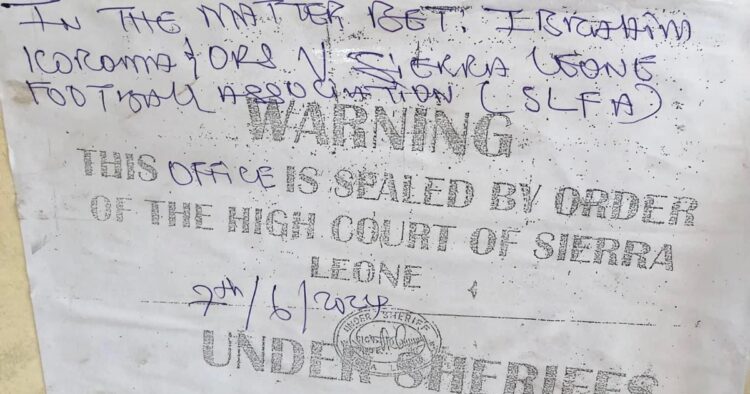 IN THE MATTER BET: IBRAHIM
KOROMA & ORS V SIERRA LEONE
FOOTBALL ASSOCIATION (SLFA)
WARNING
THIS OFFICE IS SEALED BY ORDER
OF THE HIGH COURT OF SIERRA
LEONE
7th/6/2024
UNDER SHERIFF
UNDER SHERIFFS